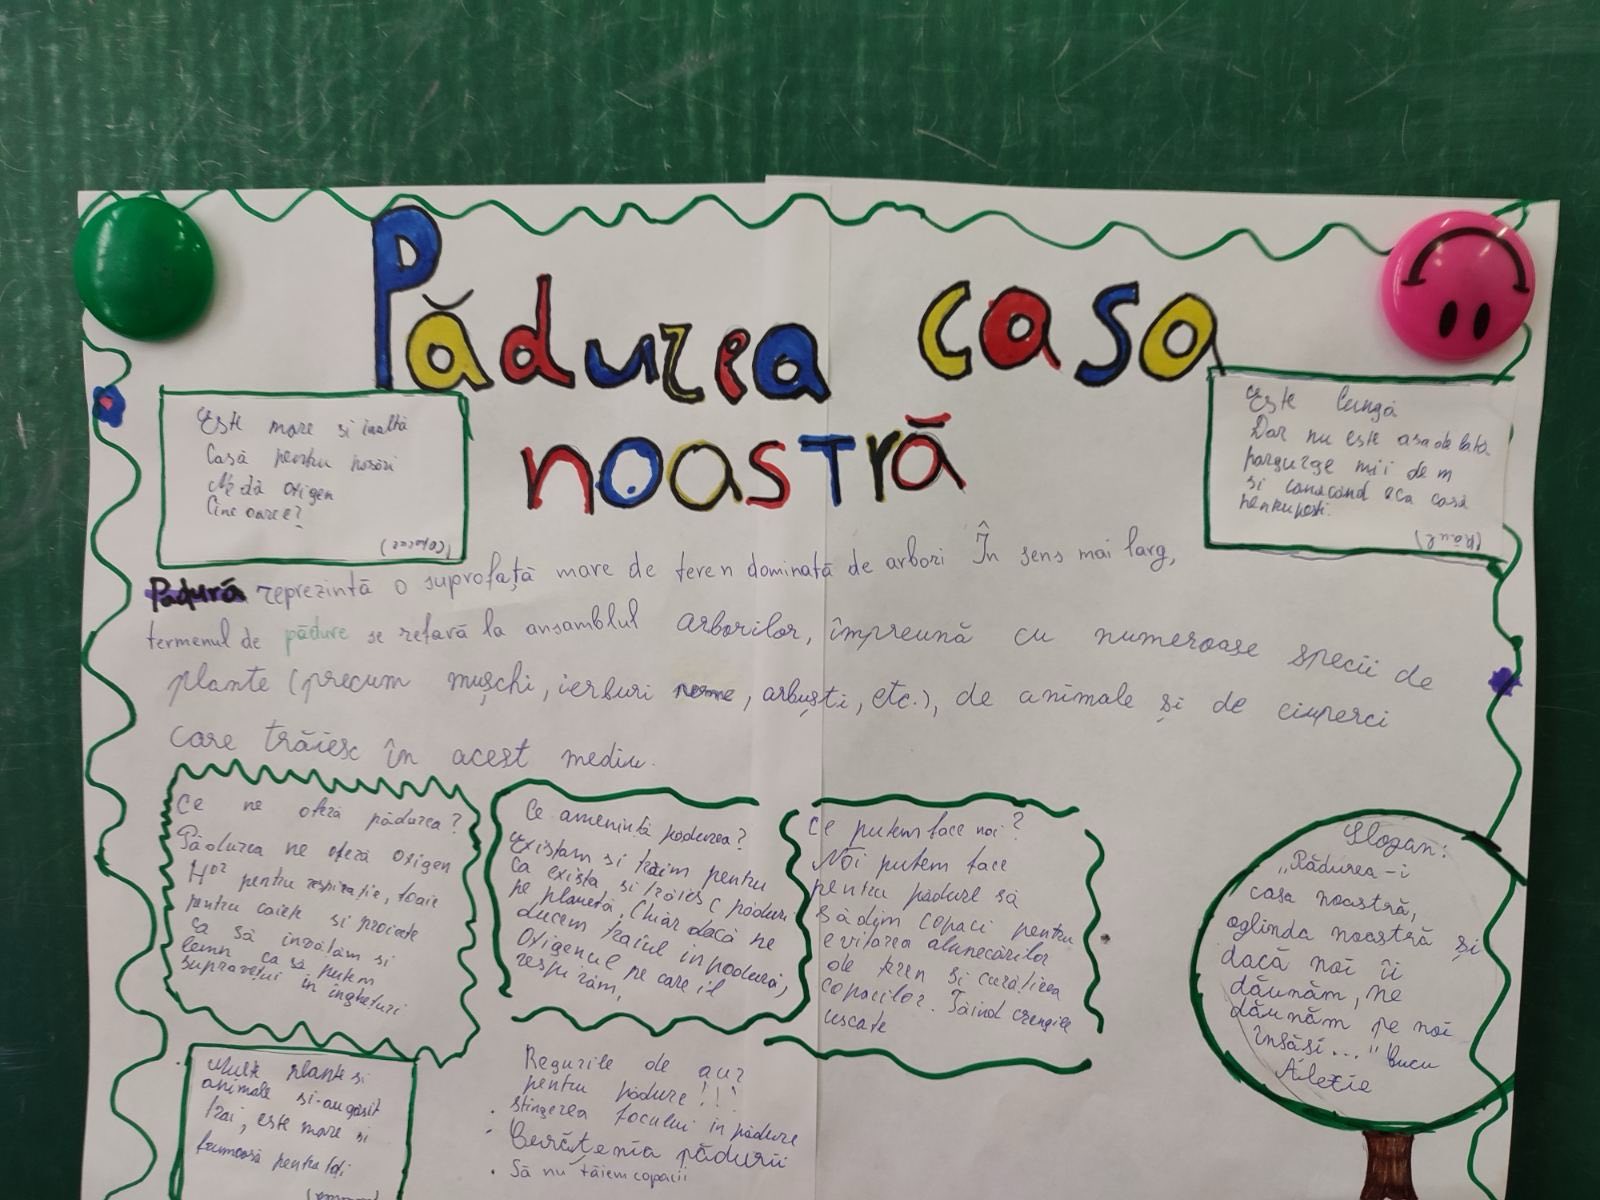 Pădurea casa
noastră
Este mare si inaltă
Casă pentru pasări
Ne dă oxigen
Cine oare?
(copacul)
Este lungă
Dar nu este asa de lata
parcurge mii de m
si
casă
pentru pesti.
(Râul)
Pădură reprezintă o suprofață mare de teren dominată de arbori În sens mai larg,
termenul de pădure se refară la ansamblul arborilor, împreună cu numeroase specii de
plante (precum mușchi, ierburi, arbuști, etc.), de animale și de ciuperci
care trăiesc în acest mediu.
Ce ne oferă pădurea?
Pădurea ne oferă oxigen
pentru respirație, foaie
pentru caiete si proiecte
ca să invătăm si
lemn ca să putem
supravețui în înghețuri
Ce amenintă padurea?
Existam si trăim pentru
ca exista, si trăiesc păduri
pe planetă. Chiar dacă ne
ducem traiul in pădură,
Oxigenul pe care îl
respirăm,
Ce putem face noi?
Noi putem face
pentru pădure să
sădim copaci pentru
evitarea alunecărilor
de teren si curătirea
copacilor. Tăind crengile
uscate
Slogan:
„Pădurea-i
casa noastră,
oglinda noastră și
dacă noi îi
dăunăm, ne
dăunăm pe noi
însăsi..." Bucu
Alexia
Multe plante si
animale si-au găsit
trai, este mare si
frumoasă pentru toți
Regurile de aur
pentru pădure!!!
• stingerea focului in pădure
• Curățenia pădurii
• Să nu tăiem copacii